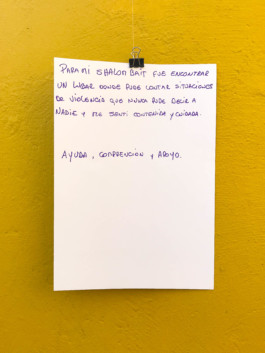 PARA MI SHALOM BAIT FUE ENCONTRAR
UN LUGAR DONDE PUDE CONTAR SITUACIONES
DE VIOLENCIA QUE NUNCA PUDE DECIR A
NADIE Y ME SENTI CONTENIDA Y CUIDADA.
AYUDA, COMPRENCIÓN Y APOYO.